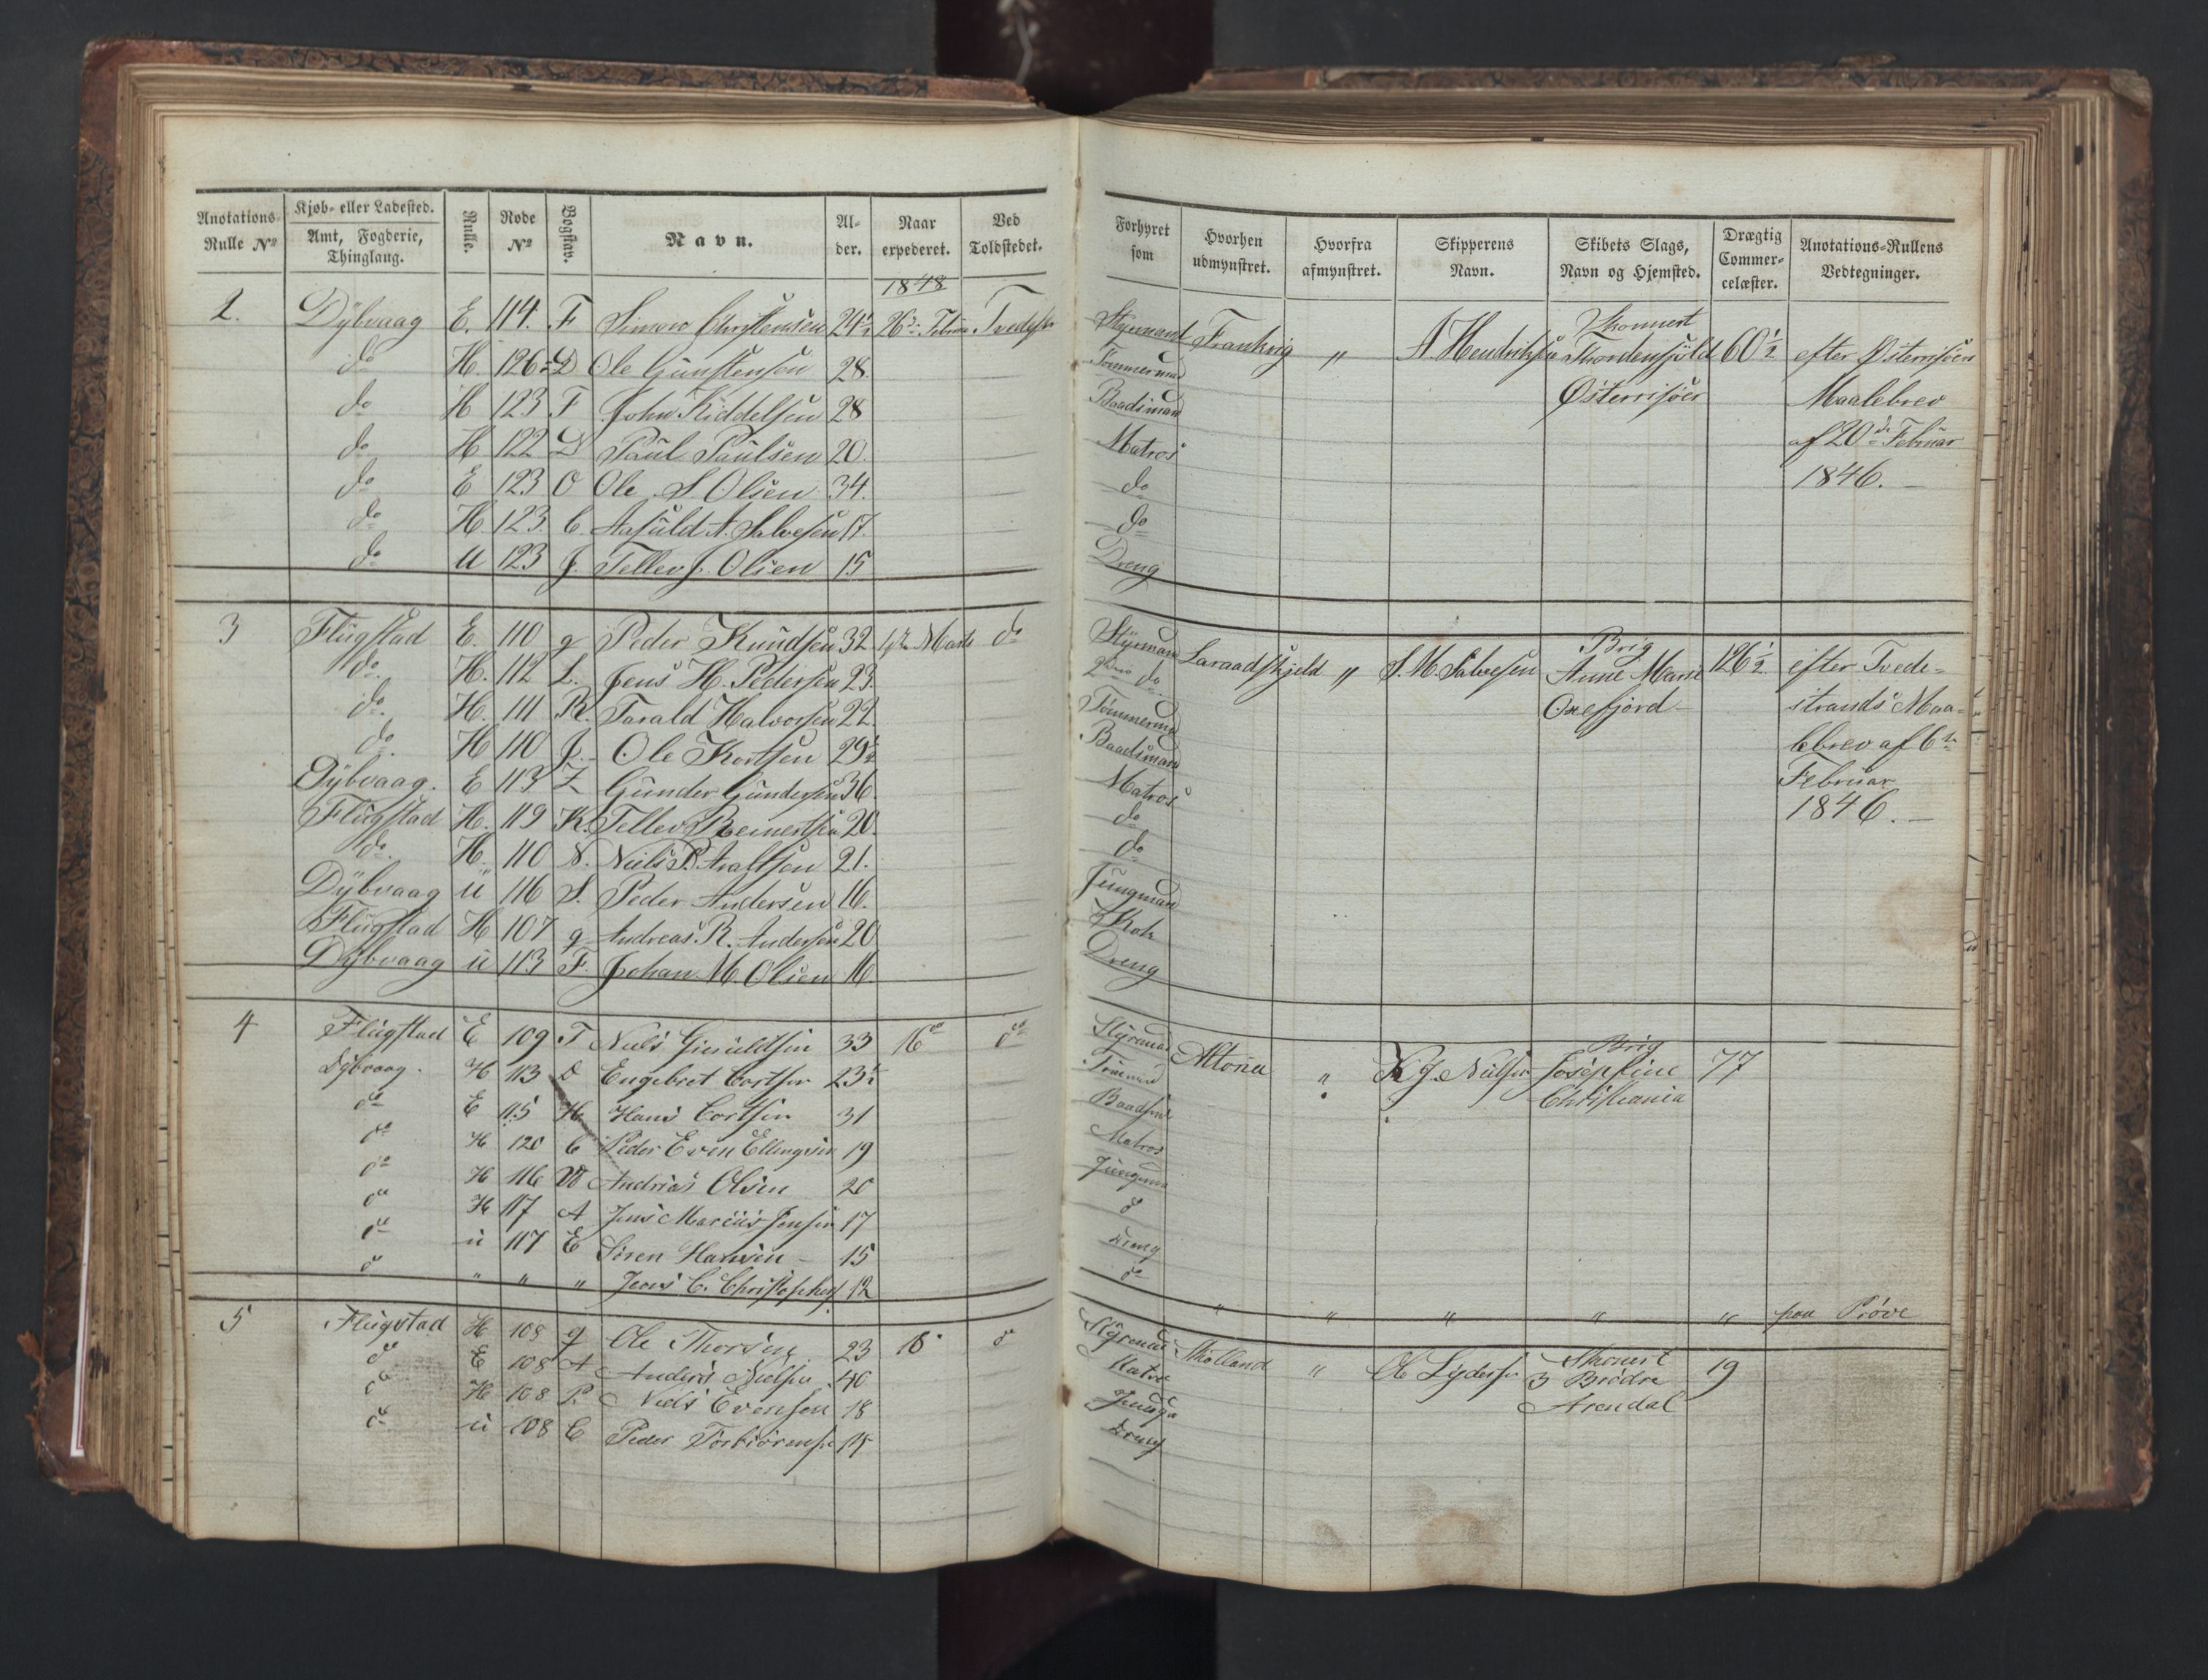 Anotations-Rulle Nº | Kjøb- eller Ladested. Amt, Fogderie, Thinglaug. | Rulle. | Rode Nº | Bogstav. | Navn. | Alder. | Naar expederet. | Ved Toldstedet. | Forhyret som | Hvorhen udmynstret. | Hvorfra afmynstret. | Skipperens Navn. | Skibets Slags, Navn og Hjemsted. | Drægtig Commercelæster. | Anotations-Rullens Vedtegninger.
1848
2. Dÿbvaag E. 114. F Simon Christensen 24½ 26de Febru Tvedestr Styrmand Frankrig " A. Hendriksen Skonnert Thordenskjöld Østerrisöer 60½ efter Østerrisöers Maalebrev af 20de Februar 1846. –
do H. 126 D Ole Gunstensen 28. Tömmermd
do H 123 F John Kiddelsen 28 Baadsmand
do H 122 D Paul Paulsen 20. Matros
do E 123 O Ole S. Olsen 34. do
do H. 123 C. Aasuld A. Salvesen 17. do
do U 123 J. Tellev J. Olsen 15 Dreng
3 Flugstad E. 110 g Peder Knudsen 32 Marts do Styrmand Laraadskjeld " S. M. Salvesen Brig Anne Marie Oxefjord 126½ efter Tvedestrands Maalebrev af 6te Februar 1846. –
do H. 112 L. Jens H. Pedersen 23. 2den do
do H. 111 R. Tarald Halvorsen 22. Tömmermd
do. H 110 J. Ole Kortsen 29½ Baadsmand
Dÿbvaag. E 113 Z Gunder Gundersen 36. Matros
Flugstad H. 119 K. Tellev Reinertsen 20. do
do. H. 110 N. Niels P. Araltsen 21. do
Dÿbvaag ü 116 S. Peder Andersen 16. Jungmand
Flugstad H 107 g Andreas R. Andersen 20 Kok
Dÿbvaag ü 113 F. Johan M. Olsen 16. Dreng
4 Flugstad E 109 T Niels Gieruldsen 33 16de do Styrmd Altona " Nielsen Brig Josephine Christiania 77
Dybvaag. H 113 D Engebret Cortsen 23½ Tömmermd
do E 115 H Hans Cortsen 31 Baadsmd
do H 120 C Peder Even Ellingsen 19 Matros
do H 116 W Andreas Olsen 20 Jungmd
do H 117 A Jens Marcus Jensen 17 do
do ü 117 E Sören Hansen – 15 Dreng
do " " " Jens C. Christophers 12 do " " " " " paa Pröve
5 Flugstad H 108 g Ole Thorsen 23 18 do Styrmd Holland " Ole Lydersen Skonert 3 Brödre Arendal 19
do E 108 A Anders Nielsen 40 Matro
do H 108 P. Niels Evensen 18 Jungm
do ü 108 C Peder Torbiörnsen 15 Dreng